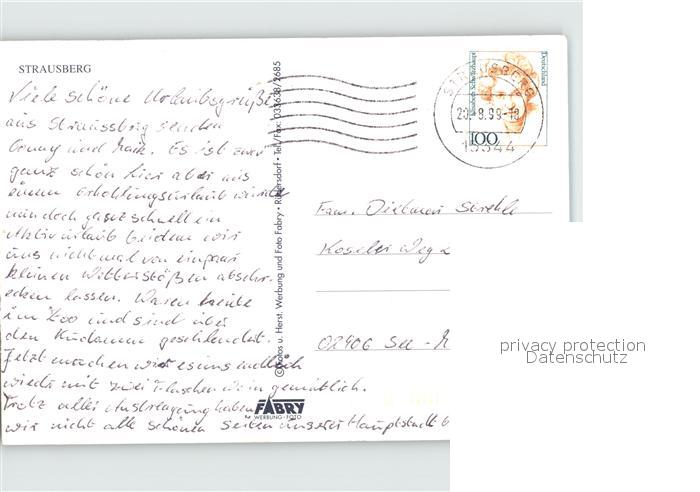 STRAUSBERG
Viele schöne Urlaubsgrüße
aus Straussberg senden
Conny und Maik. Es ist zwar
ganz schön hier aber aus
einem Erholungsurlaub wurde
nun doch ganz schnell ein
Aktivurlaub bei dem wir
uns nicht mal von ein paar
kleinen Wetterstößen abschr-
ecken lassen. Waren heute
im Zoo und sind über
den Kudamm geschlendert.
Jetzt machen wir es uns endlich
wieder mit zwei Flaschen Wein gemütlich.
Trotz aller Anstrengung haben
wir nicht alle schönen Seiten unserer Hauptstadt
© Fotos u. Herst. Werbung und Foto Fabry • Rüdersdorf • Tel./Fax: 033638/2685
FABRY
WERBUNG·FOTO
Elisabeth Schwarzhaupt
Deutschland
100
STRAUSBERG
20.-8.99-18
15344
Fam. Dietmar Strehle
Koseler Weg
02906 See -
privacy protection
Datenschutz